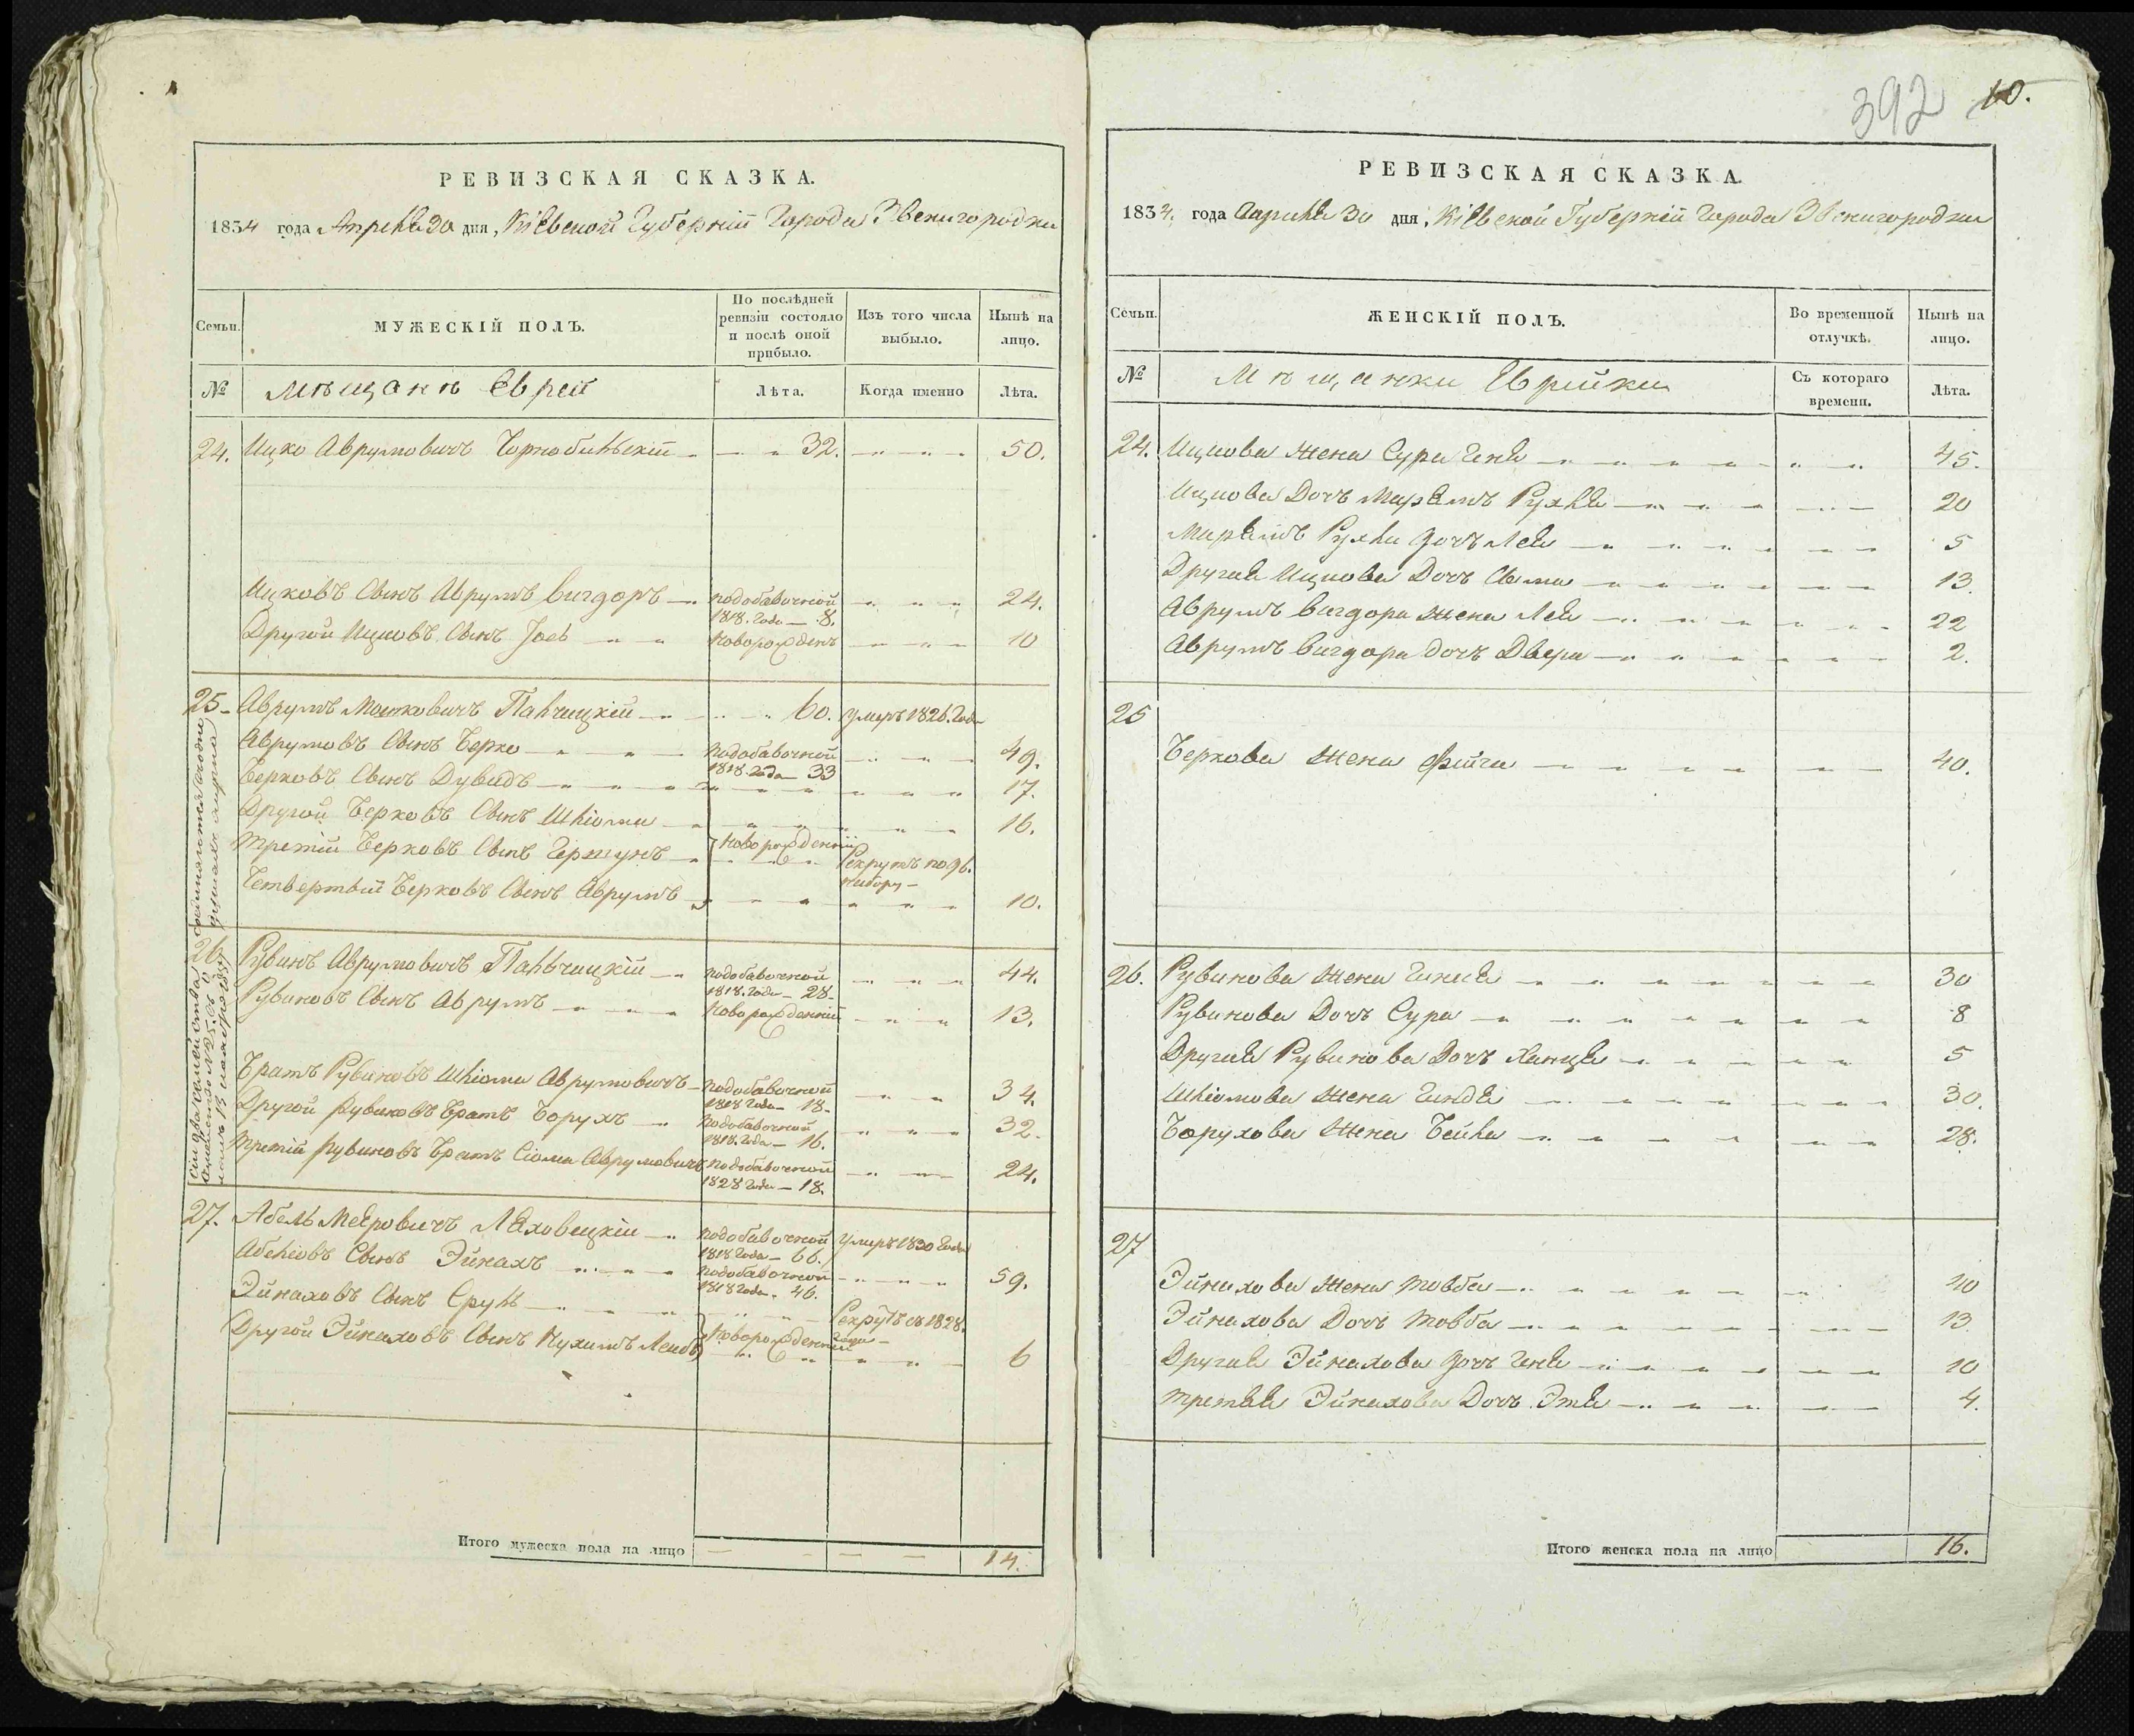 РЕВИЗСКАЯ СКАЗКА.
1834 года Апреля 30 дня, Кіевской Губерніи Города Звенигородки
Семьи.
МУЖЕСКІЙ ПОЛЪ.
По послѣдней ревизіи состояло и послѣ оной прибыло.
Изъ того числа выбыло.
Нынѣ на лицо.
№ мѣщанъ Еврей
Лѣта.
Когда именно
Лѣта.
24. Ицко Аврумовичъ Чорнобильскій 32. 50.
Ицковъ Сынъ Аврумъ Вигдоръ подобавочной 1818. Года 8. 24.
Другой Ицковъ Сынъ Іось новорожденъ 10
25 Аврумъ Мошковичъ Пальчицкій 60. умеръ 1826. Года
Аврумовъ Сынъ Берко подобавочной 1818 года 33 49.
Берковъ Сынъ Дувидъ 17.
Другой Берковъ Сынъ Шліома 16.
Третій Берковъ Сынъ Гершунъ новорожденній Рекрутъ по 96. набору
Четвертый Берковъ Сынъ Аврумъ 10.
26 Рувинъ Аврумовичъ Пальчицкій подобавочной 1818. Года 28 44.
Рувиновъ Сынъ Аврумъ новорожденній 13.
Братъ Рувиновъ Шліома Аврумовичъ подобавочной 1818 Года 18 34.
Другой Рувиновъ Братъ Борухъ подобавочной 1818. Года 16. 32.
Третій Рувиновъ Братъ Сіома Аврумовичъ подобавочной 1828 Года 18. 24.
27. Абель Меяровичъ Ляховецкій подобавочной 1818 Года 66. умеръ 1830 Года
Абеліовъ Сынъ Эйнахъ подобавочной 1818 Года 46. 59.
Эйнаховъ Сынъ Сруль Рекрутъ съ 1828. Года
Другой Эйнаховъ Сынъ Нухимъ Лейбъ новорожденній 6
Итого мужеска пола на лицо 14.
392 10.
РЕВИЗСКАЯ СКАЗКА.
1834. года Априля 30 дня, Кіевской Губерніи Города Звенигородки
Семьи.
ЖЕНСКІЙ ПОЛЪ.
Во временной отлучкѣ.
Нынѣ на лицо.
№ Мѣщанки Еврейки
Съ котораго времени.
Лѣта.
24. Ицкова Жена Сура Геня 45.
Ицкова Дочъ Мирямъ Рухля 20
Мирямъ Рухли дочъ Лея 5
Другая Ицкова Дочъ Сыма 13
Аврумъ Вигдора Жена Лея 22
Аврумъ Вигдора дочъ Двера 2.
25
Беркова Жена Фейга 40.
26. Рувинова Жена Гинея 30
Рувинова Дочъ Сура 8
Другая Рувинова Дочъ Ханця 5
Шліомова Жена Гиндя 30.
Борухова Жена Бейла 28.
27
Эйнахова Жена Товба 40
Эйнахова Дочъ Товба 13
Другая Эйнахова дочъ Геня 10
Третяя Эйнахова Дочъ Этя 4.
Итого женска пола на лицо 16.